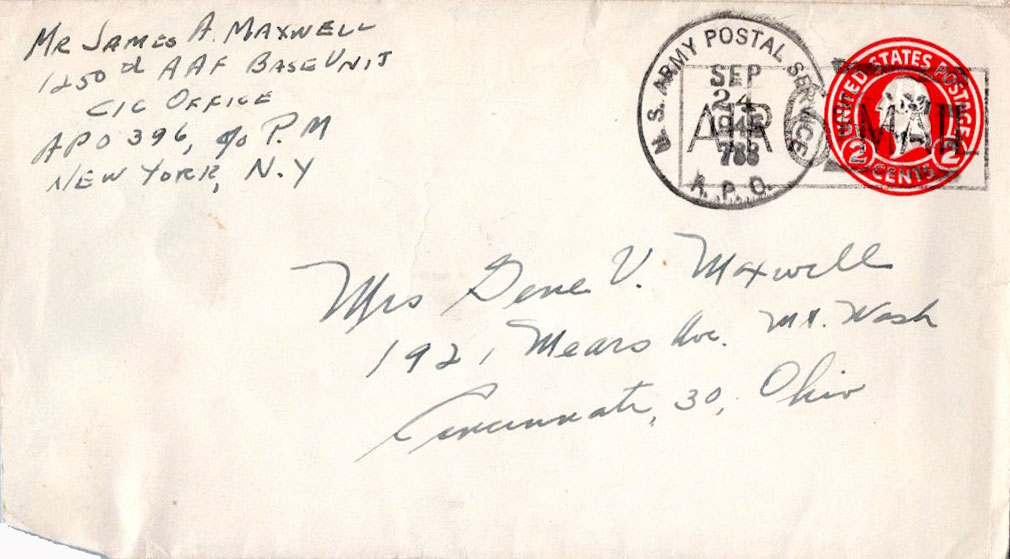 Mr James A. Maxwell
1250th AAF Base Unit
CIC Office
APO 396, c/o P.M
New York, N.Y
U. S. ARMY POSTAL SERVICE
SEP
24
AIR MAIL
788
A. P. O.
UNITED STATES POSTAGE
2 CENTS 2
Mrs Gene V. Maxwell
1921 Mears Ave. Mt. Wash
Cincinnati, 30, Ohio